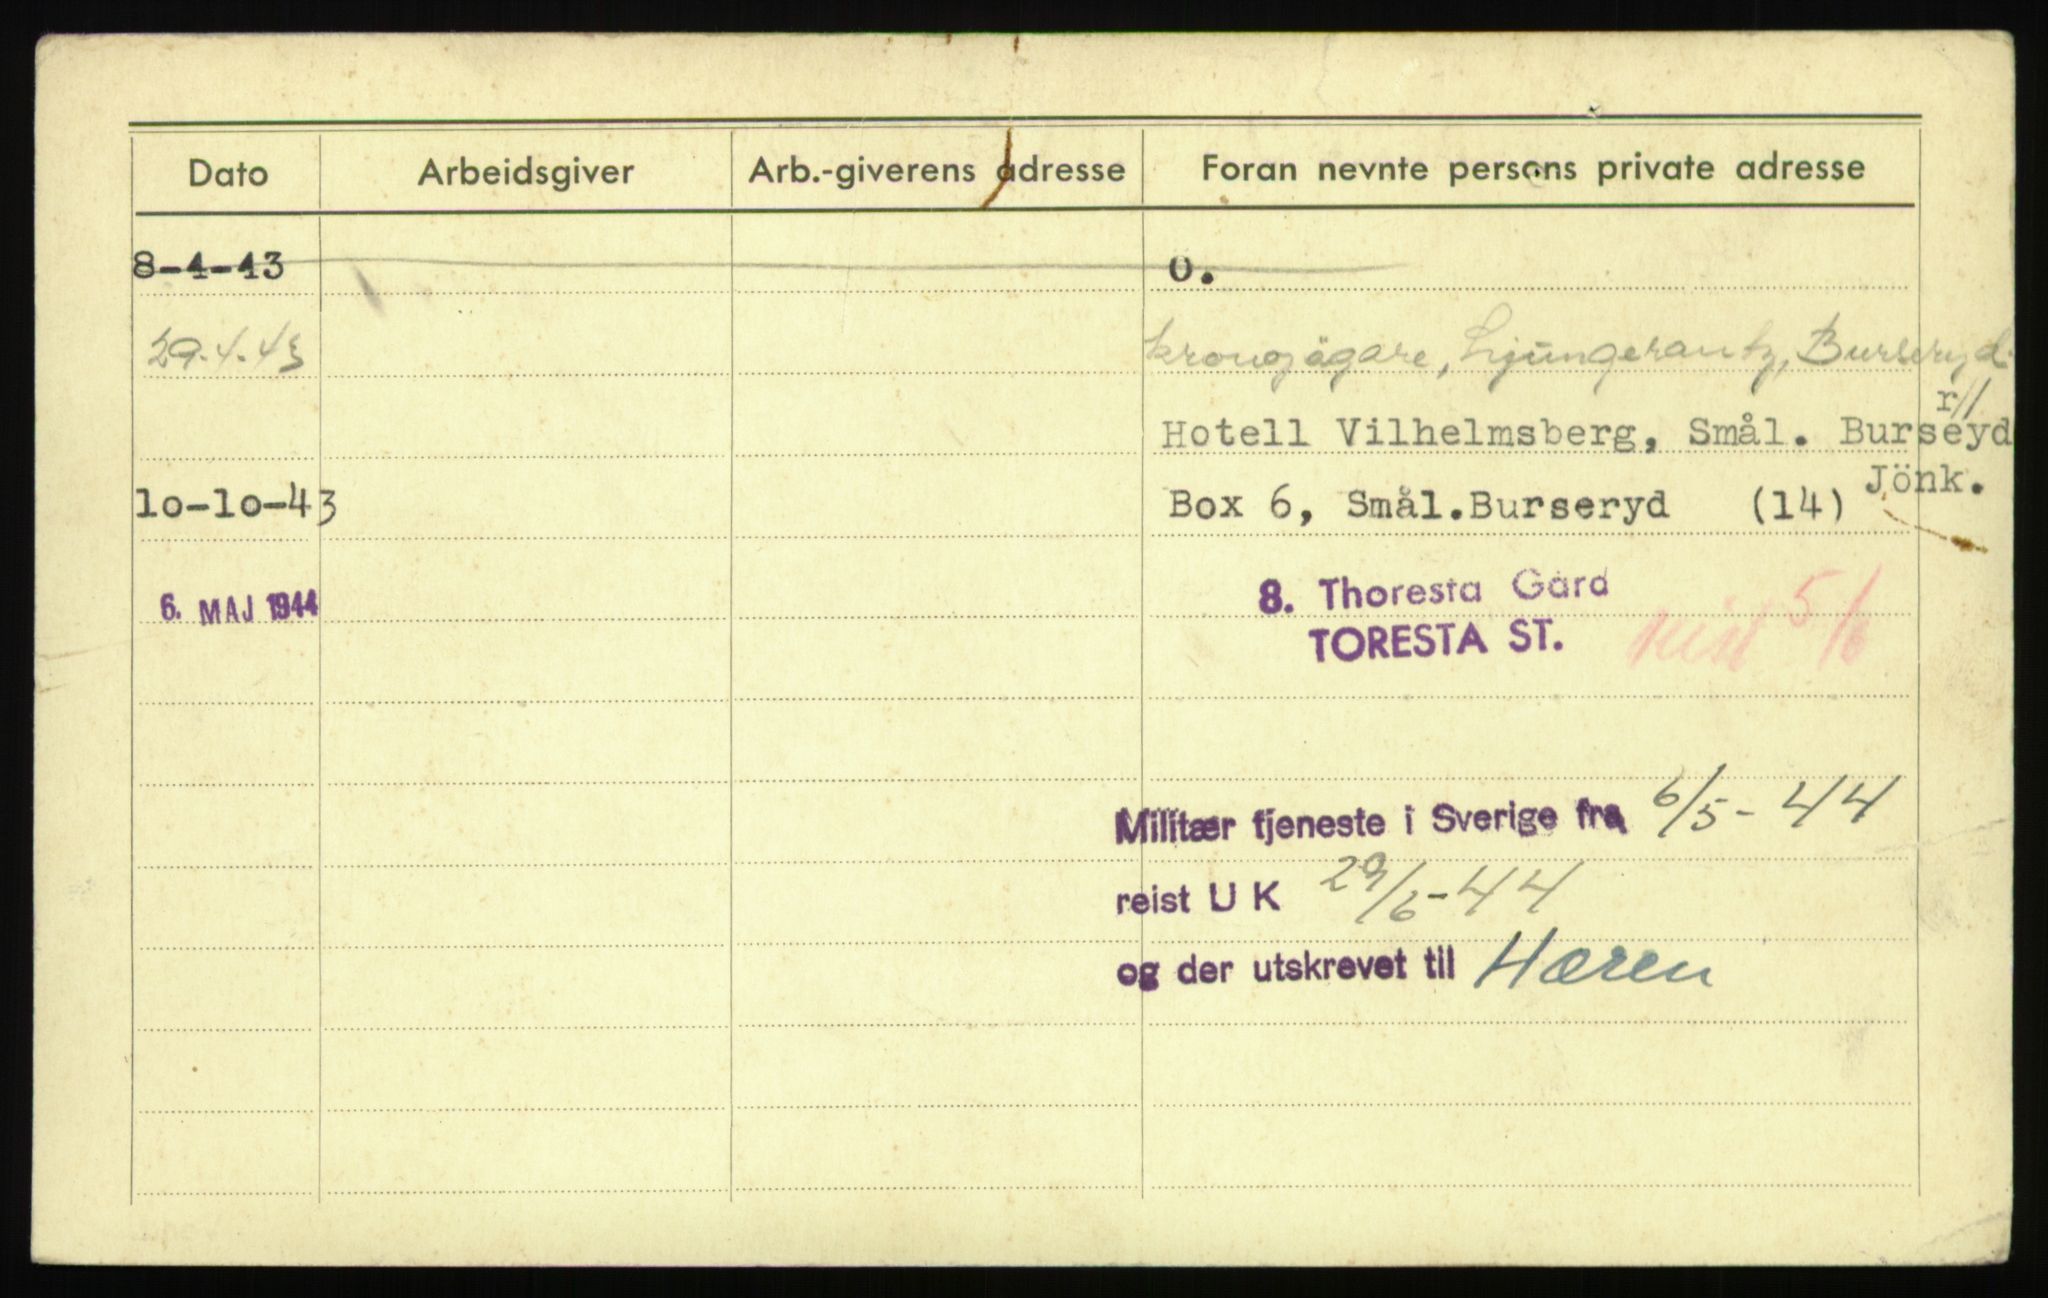 Dato Arbeidsgiver Arb.-giverens adresse Foran nevnte persons private adresse
8-4-43 Ö.
29.4.43 kronojägare, Ljungcrantz, Burseryd.
r//
Hotell Vilhelmsberg, Smål. Burseyd
Jönk.
10-10-43 Box 6, Smål.Burseryd (14)
6. MAJ 1944 8. Thoresta Gård
TORESTA ST. reist 5/6
Militær tjeneste i Sverige fra 6/5-44
reist U K 29/6-44
og der utskrevet til Hæren